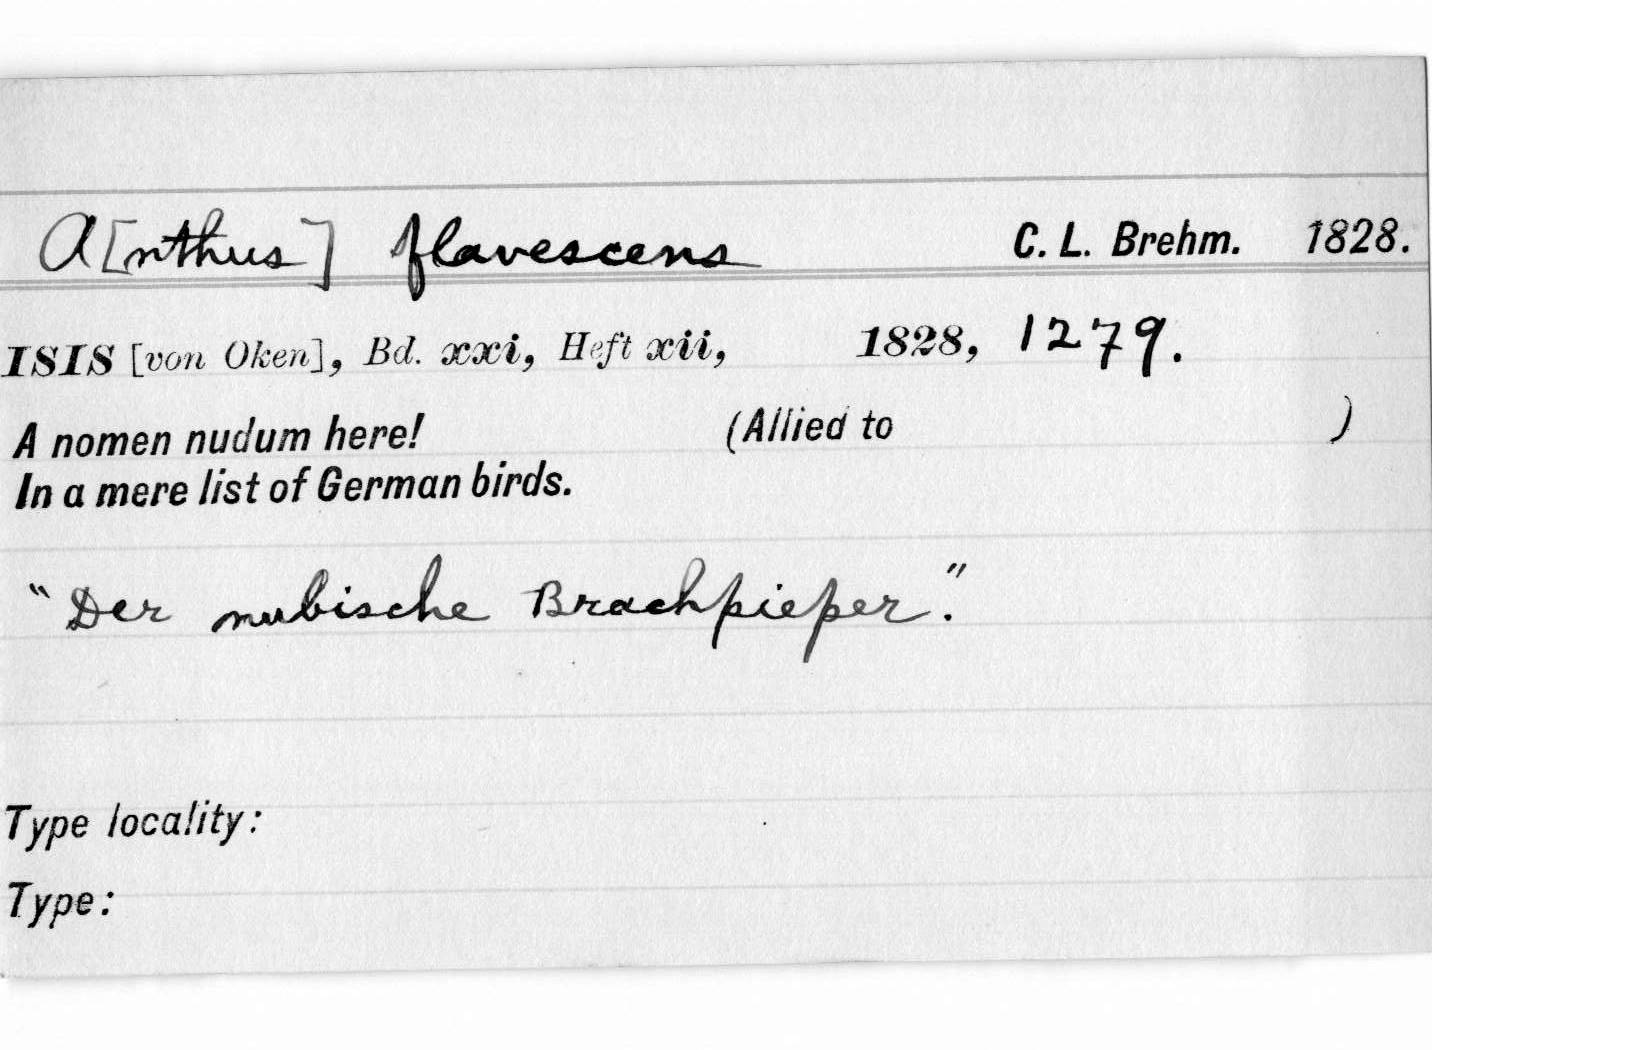 A[nthus] flavescens C. L. Brehm. 1828.
ISIS [von Oken], Bd. xxi, Heft xii, 1828, 1279.
A nomen nudum here! (Allied to )
In a mere list of German birds.
"Der nubische Brachpieper."
Type locality:
Type: